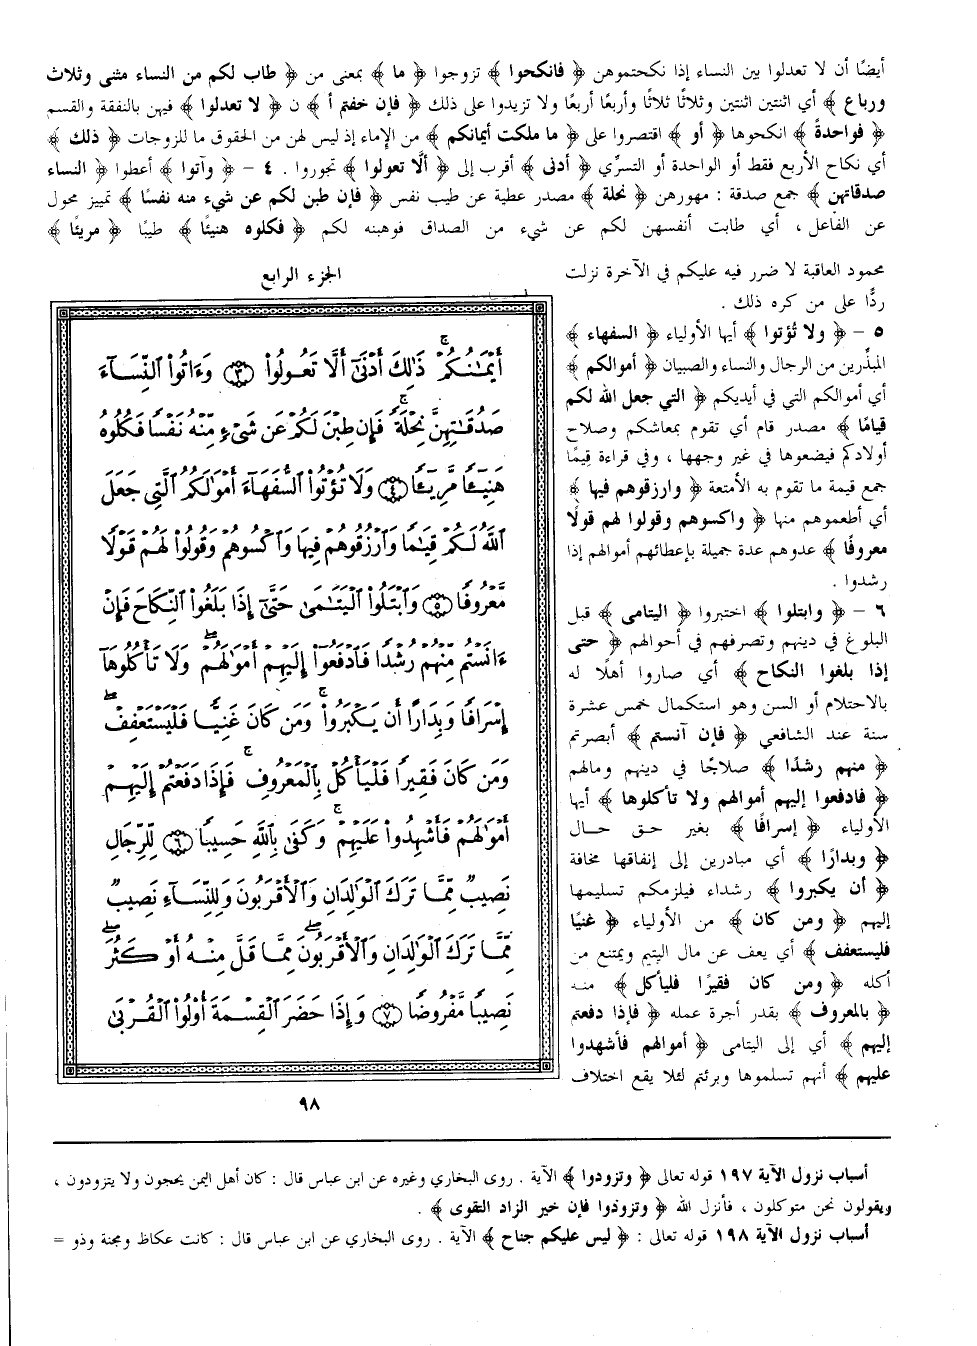 أيضًا أن لا تعدلوا بين النساء إذا نكحتموهن ﴿ فانكحوا ﴾ تزوجوا ﴿ ما ﴾ بمعنى من ﴿ طاب لكم من النساء مثنى وثلاث
ورباع ﴾ أي اثنتين اثنتين وثلاثًا ثلاثًا وأربعًا أربعًا ولا تزيدوا على ذلك ﴿ فإن خفتم أ ﴾ ن ﴿ لا تعدلوا ﴾ فيهن بالنفقة والقسم
﴿ فواحدةً ﴾ انكحوها ﴿ أو ﴾ اقتصروا على ﴿ ما ملكت أيمانكم ﴾ من الإماء إذ ليس لهن من الحقوق ما للزوجات ﴿ ذلك ﴾
أي نكاح الأربع فقط أو الواحدة أو التسرِّي ﴿ أدنى ﴾ أقرب إلى ﴿ ألَّا تعولوا ﴾ تجوروا . ٤ - ﴿ وآتوا ﴾ أعطوا ﴿ النساء
صدقاتهن ﴾ جمع صدقة : مهورهن ﴿ نحلة ﴾ مصدر عطية عن طيب نفس ﴿ فإن طبن لكم عن شيء منه نفسًا ﴾ تمييز محول
عن الفاعل ، أي طابت أنفسهن لكم عن شيء من الصداق فوهبنه لكم ﴿ فكلوه هنيئًا ﴾ طيبًا ﴿ مريئًا ﴾
محمود العاقبة لا ضرر فيه عليكم في الآخرة نزلت
ردًّا على من كره ذلك .
٥ - ﴿ ولا تُؤتوا ﴾ أيها الأولياء ﴿ السفهاء ﴾
المبذِّرين من الرجال والنساء والصبيان ﴿ أموالكم ﴾
أي أموالكم التي في أيديكم ﴿ التي جعل الله لكم
قيامًا ﴾ مصدر قام أي تقوم بمعاشكم وصلاح
أولادكم فيضعوها في غير وجهها ، وفي قراءة قيمًا
جمع قيمة ما تقوم به الأمتعة ﴿ وارزقوهم فيها ﴾
أي أطعموهم منها ﴿ واكسوهم وقولوا لهم قولًا
معروفًا ﴾ عدوهم عدة جميلة بإعطائهم أموالهم إذا
رشدوا .
٦ - ﴿ وابتلوا ﴾ اختبروا ﴿ اليتامى ﴾ قبل
البلوغ في دينهم وتصرفهم في أحوالهم ﴿ حتى
إذا بلغوا النكاح ﴾ أي صاروا أهلًا له
بالاحتلام أو السن وهو استكمال خمس عشرة
سنة عند الشافعي ﴿ فإن آنستم ﴾ أبصرتم
﴿ منهم رشدًا ﴾ صلاحًا في دينهم ومالهم
﴿ فادفعوا إليهم أموالهم ولا تأكلوها ﴾ أيها
الأولياء ﴿ إسرافًا ﴾ بغير حق حال
﴿ وبدارًا ﴾ أي مبادرين إلى إنفاقها مخافة
﴿ أن يكبروا ﴾ رشداء فيلزمكم تسليمها
إليهم ﴿ ومن كان ﴾ من الأولياء ﴿ غنيًا
فليستعفف ﴾ أي يعف عن مال اليتيم ويمتنع من
أكله ﴿ ومن كان فقيرًا فليأكل ﴾ منه
﴿ بالمعروف ﴾ بقدر أجرة عمله ﴿ فإذا دفعتم
إليهم ﴾ أي إلى اليتامى ﴿ أموالهم فأشهدوا
عليهم ﴾ أنهم تسلموها وبرئتم لئلا يقع اختلاف
الجزء الرابع
أَيْمَٰنُكُمْ ۚ ذَٰلِكَ أَدْنَىٰٓ أَلَّا تَعُولُوا۟ ﴿٣﴾ وَءَاتُوا۟ ٱلنِّسَآءَ
صَدُقَٰتِهِنَّ نِحْلَةً ۚ فَإِن طِبْنَ لَكُمْ عَن شَىْءٍ مِّنْهُ نَفْسًا فَكُلُوهُ
هَنِيٓـًٔا مَّرِيٓـًٔا ﴿٤﴾ وَلَا تُؤْتُوا۟ ٱلسُّفَهَآءَ أَمْوَٰلَكُمُ ٱلَّتِى جَعَلَ
ٱللَّهُ لَكُمْ قِيَٰمًا وَٱرْزُقُوهُمْ فِيهَا وَٱكْسُوهُمْ وَقُولُوا۟ لَهُمْ قَوْلًا
مَّعْرُوفًا ﴿٥﴾ وَٱبْتَلُوا۟ ٱلْيَتَٰمَىٰ حَتَّىٰٓ إِذَا بَلَغُوا۟ ٱلنِّكَاحَ فَإِنْ
ءَانَسْتُم مِّنْهُمْ رُشْدًا فَٱدْفَعُوٓا۟ إِلَيْهِمْ أَمْوَٰلَهُمْ ۖ وَلَا تَأْكُلُوهَآ
إِسْرَافًا وَبِدَارًا أَن يَكْبَرُوا۟ ۚ وَمَن كَانَ غَنِيًّا فَلْيَسْتَعْفِفْ ۖ
وَمَن كَانَ فَقِيرًا فَلْيَأْكُلْ بِٱلْمَعْرُوفِ ۚ فَإِذَا دَفَعْتُمْ إِلَيْهِمْ
أَمْوَٰلَهُمْ فَأَشْهِدُوا۟ عَلَيْهِمْ ۚ وَكَفَىٰ بِٱللَّهِ حَسِيبًا ﴿٦﴾ لِّلرِّجَالِ
نَصِيبٌ مِّمَّا تَرَكَ ٱلْوَٰلِدَانِ وَٱلْأَقْرَبُونَ وَلِلنِّسَآءِ نَصِيبٌ
مِّمَّا تَرَكَ ٱلْوَٰلِدَانِ وَٱلْأَقْرَبُونَ مِمَّا قَلَّ مِنْهُ أَوْ كَثُرَ ۚ
نَصِيبًا مَّفْرُوضًا ﴿٧﴾ وَإِذَا حَضَرَ ٱلْقِسْمَةَ أُو۟لُوا۟ ٱلْقُرْبَىٰ
٩٨
أسباب نزول الآية ١٩٧ قوله تعالى ﴿ وتزودوا ﴾ الآية . روى البخاري وغيره عن ابن عباس قال : كان أهل اليمن يحجون ولا يتزودون ،
ويقولون نحن متوكلون ، فأنزل الله ﴿ وتزودوا فإن خير الزاد التقوى ﴾ .
أسباب نزول الآية ١٩٨ قوله تعالى : ﴿ ليس عليكم جناح ﴾ الآية . روى البخاري عن ابن عباس قال : كانت عكاظ ومجنة وذو =